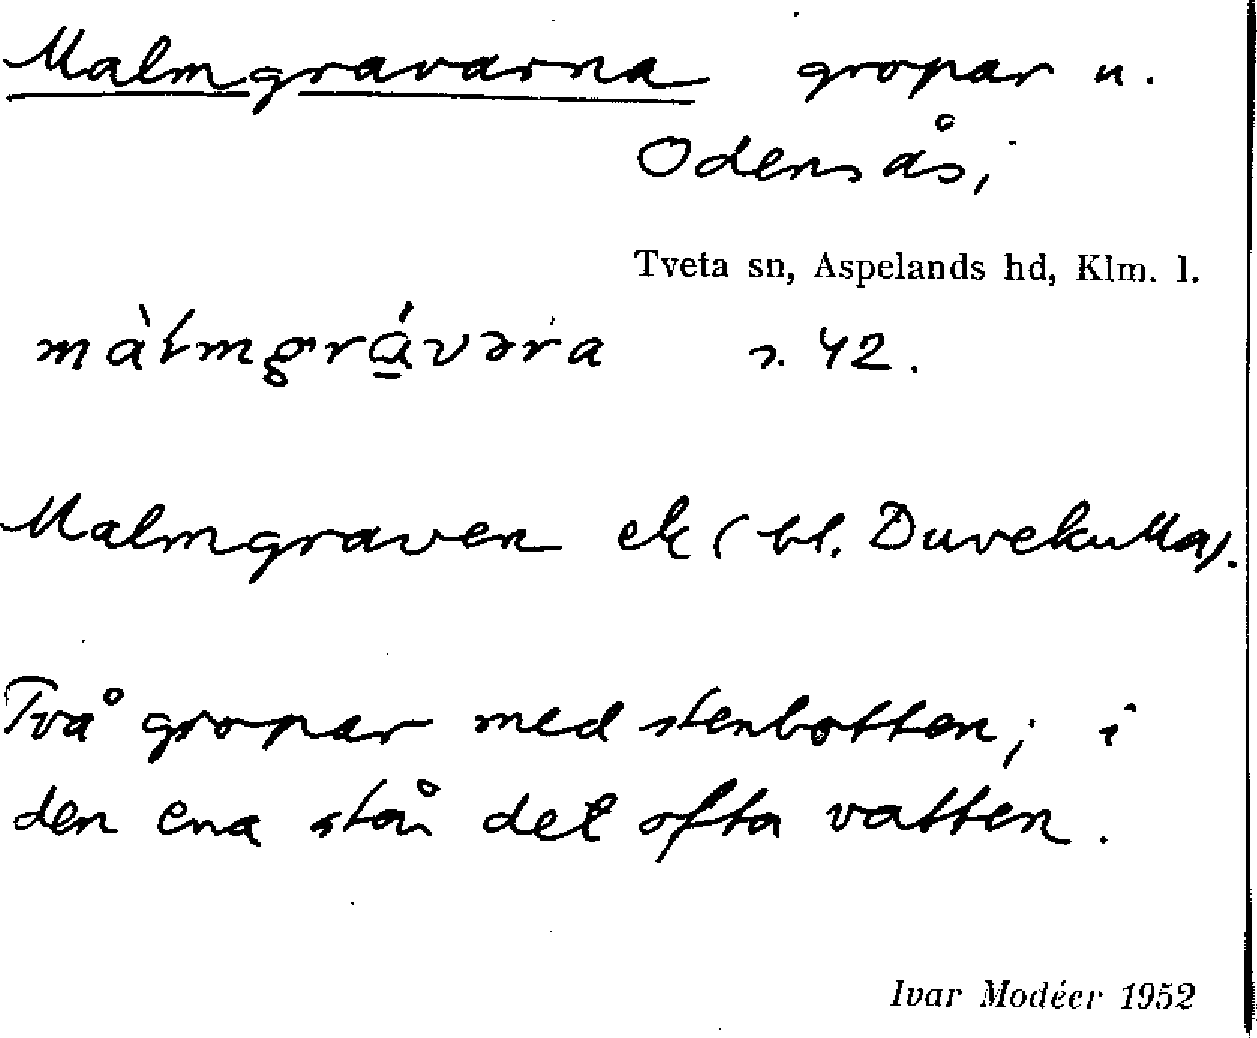 Malmgravarna gropar u.
Odensås,
Tveta sn, Aspelands hd, Klm. l.
màlmgrávəra s. 42.
Malmgraven ek (bl. Duvekulla).
Två gropar med stenbotten; i
den ena står det ofta vatten.
Ivar Modéer 1952